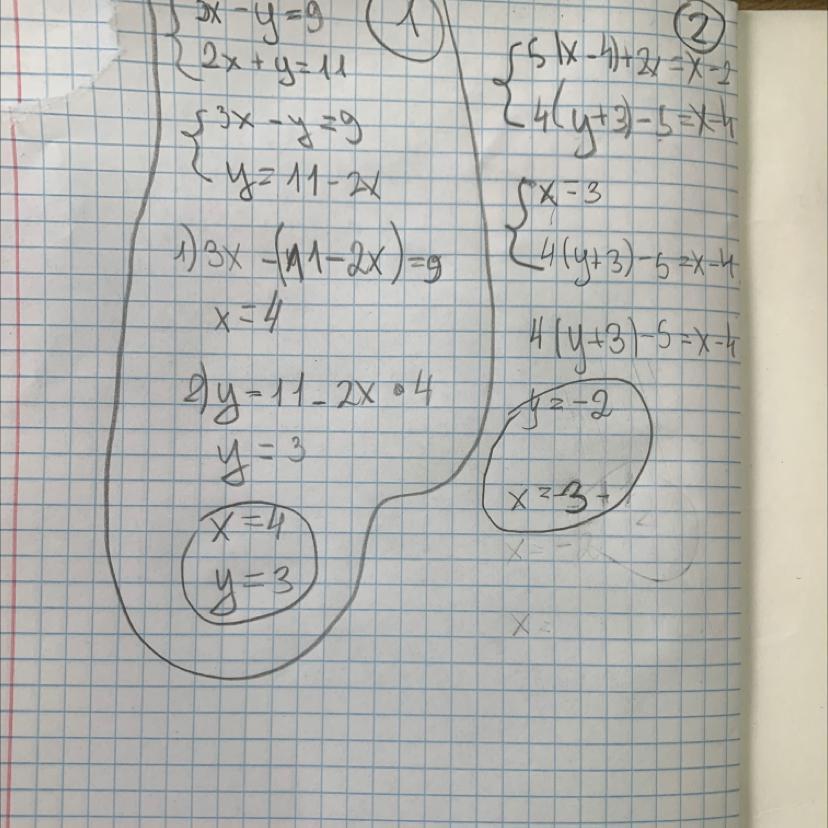 1
3x - y = 9
2x + y = 11
3x - y = 9
y = 11 - 2x
1) 3x - (11 - 2x) = 9
x = 4
2) y = 11 - 2x • 4
y = 3
x = 4
y = 3
2
5(x - 4) + 2x = x - 2
4(y + 3) - 5 = x - 4
x = 3
4(y + 3) - 5 = x - 4
4(y + 3) - 5 = x - 4
y = -2
x = -3
x = -2
x =